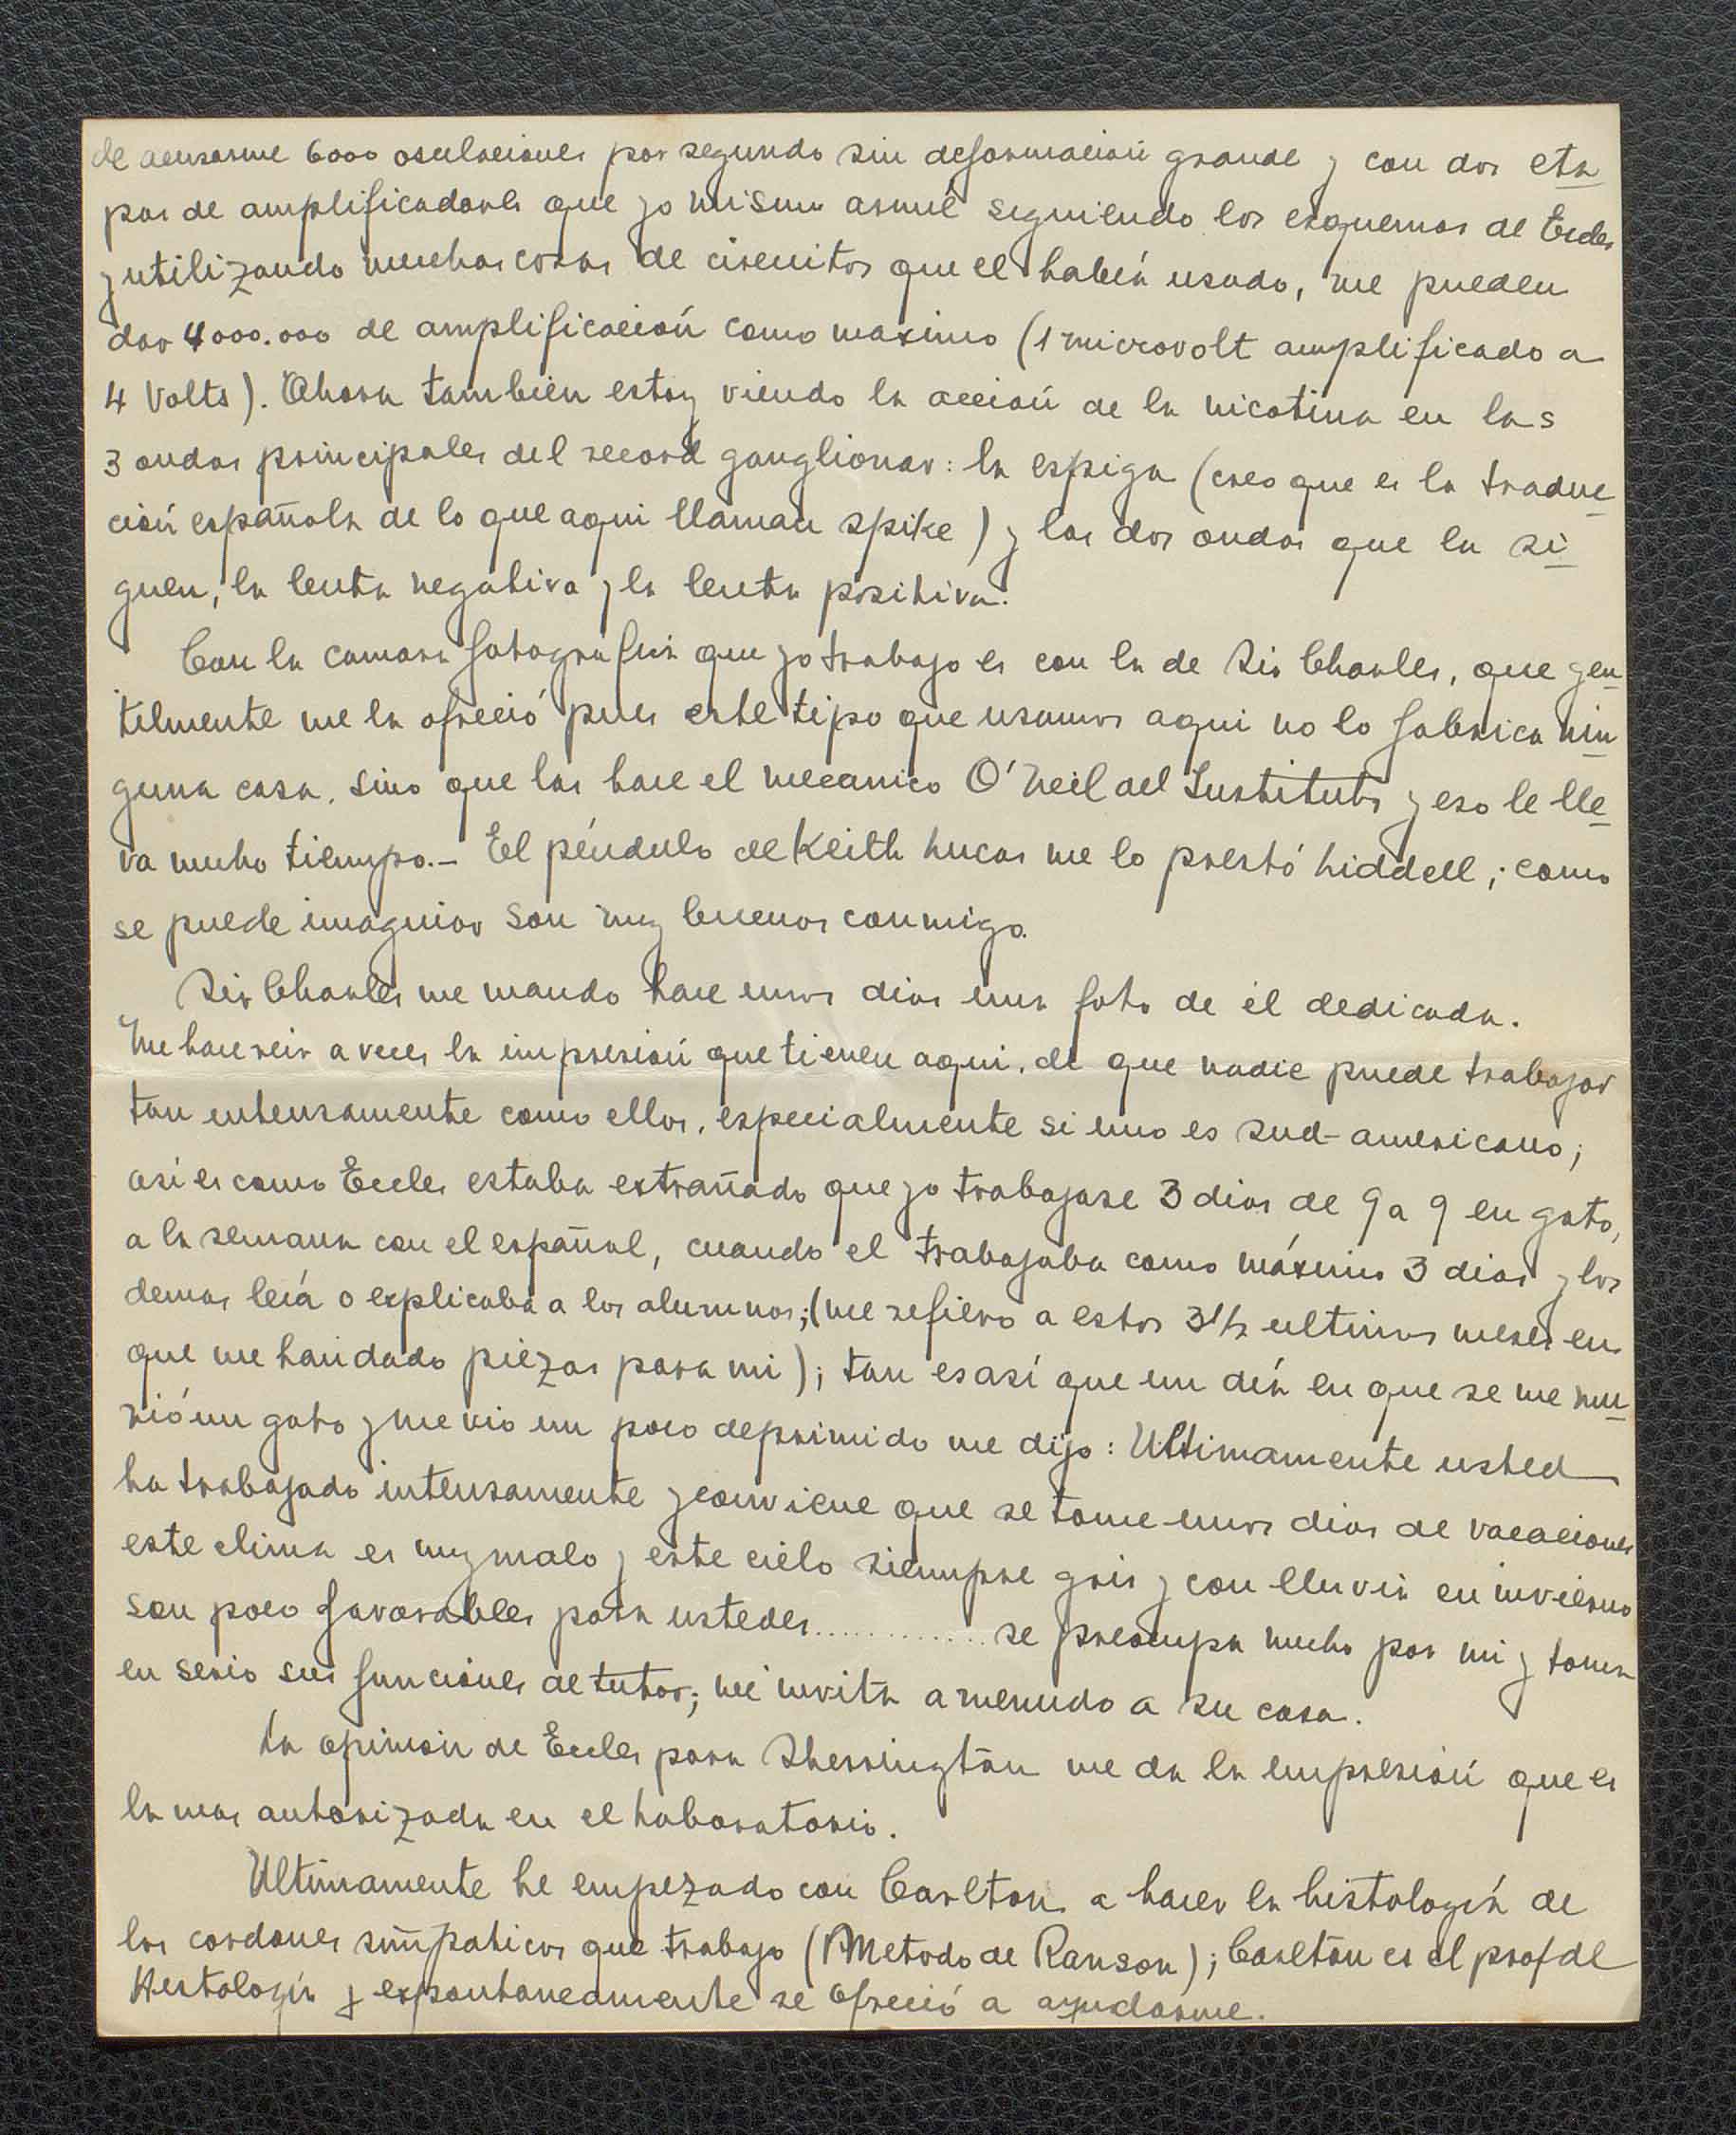 de acusarme 6000 oscilaciones por segundo sin deformación grande y con dos eta
pas de amplificadores que yo mismo armé siguiendo los esquemas de Eccles
y utilizando muchas cosas de circuitos que el había usado, me pueden
dar 4000.000 de amplificación como maximo (1 microvolt amplificado a
4 Volts). Ahora tambien estoy viendo la acción de la nicotina en las
3 ondas principales del record ganglionar: la espiga (creo que es la traduc
ción española de lo que aqui llaman spike) y las dos ondas que la si
guen, la lenta negativa y la lenta positiva.
Con la camara fotografica que yo trabajo es con la de Sir Charles, que gen
tilmente me la ofreció pues este tipo que usamos aqui no lo fabrica nin
guna casa, sino que las hace el mecanico O'Neil del Instituto y eso le lle
va mucho tiempo.- El péndulo de Keith Lucas me lo prestó Liddell; como
se puede imaginar son muy buenos conmigo.
Sir Charles me mando hace unos dias una foto de él dedicada.
Me hace reir a veces la impresión que tienen aqui, de que nadie puede trabajar
tan intensamente como ellos, especialmente si uno es sud-americano;
así es como Eccles estaba extrañado que yo trabajase 3 dias de 9 a 9 en gato,
a la semana con el español, cuando el trabajaba como máximo 3 dias y los
demas leía o explicaba a los alumnos; (me refiero a estos 3 1/2 ultimos meses en
que me han dado piezas para mi); tan es así que un día en que se me mu
rió un gato y me vio un poco deprimido me dijo: Ultimamente usted
ha trabajado intensamente y conviene que se tome unos dias de vacaciones
este clima es muy malo y este cielo siempre gris y con lluvia en invierno
son poco favorables para ustedes............. se preocupa mucho por mi y toma
en serio sus funciones de tutor; me invita a menudo a su casa.
La opinion de Eccles para Sherrington me da la impresión que es
la mas autorizada en el Laboratorio.
Ultimamente he empezado con Carlton a hacer la histología de
los cordones simpaticos que trabajo (Metodo de Ranson); Carlton es el prof de
Histología y expontaneamente se ofreció a ayudarme.